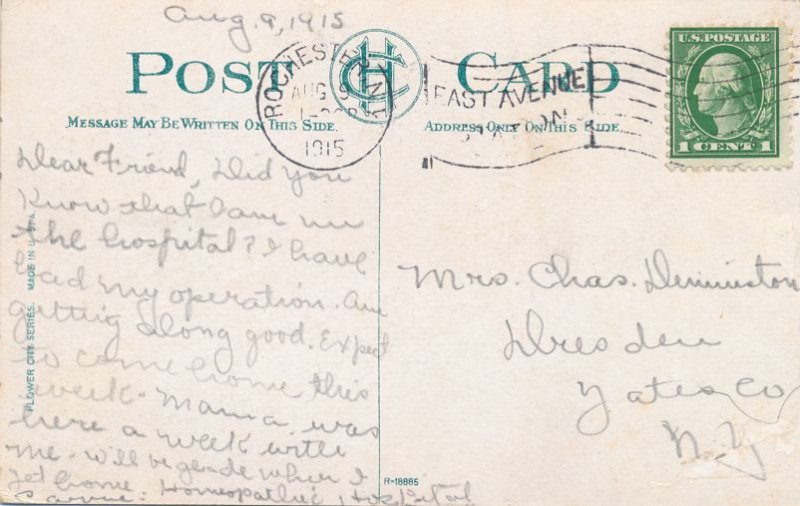 Aug. 9, 1915
POST CARD
ROCHESTER, N.Y.
AUG 9
1915
EAST AVENUE
U.S. POSTAGE
1 CENT 1
MESSAGE MAY BE WRITTEN ON THIS SIDE.
ADDRESS ONLY ON THIS SIDE.
Dear Friend, Did you
know that I am in
the hospital? I have
had my operation. am
getting along good. Expect
to come home this
week. Mama was
here a week with
me. Will be glad when I
get home.
Homeopathic Hospital
Mrs. Chas. Denniston
Dresden
Yates Co
N.Y
FLOWER CITY SERIES. MADE IN U.S.A.
R-18885